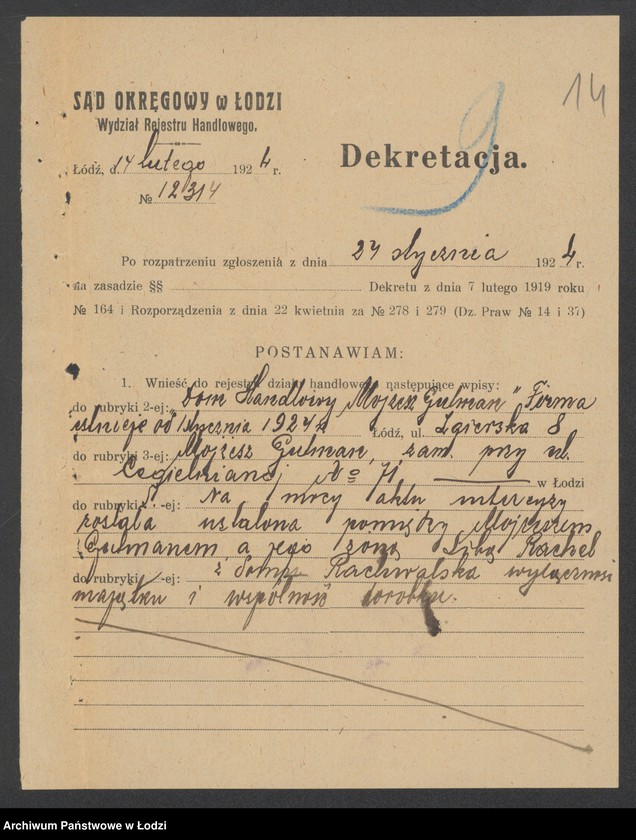 14
9
SĄD OKRĘGOWY w ŁODZI
Wydział Rejestru Handlowego.
Łódź, d. 14 lutego 1924 r.
№ 12314
Dekretacja.
Po rozpatrzeniu zgłoszenia z dnia 24 stycznia 1924 r.
na zasadzie §§ Dekretu z dnia 7 lutego 1919 roku
№ 164 i Rozporządzenia z dnia 22 kwietnia za № 278 i 279 (Dz. Praw № 14 i 37)
POSTANAWIAM:
1. Wnieść do rejestru działu handlowego następujące wpisy:
do rubryki 2-ej: „Dom Handlowy Mojżesz Gutman" Firma
istnieje od 1 stycznia 1924 r. Łódź, ul. Zgierska 8
do rubryki 3-ej: Mojżesz Gutman, zam. przy ul.
Cegielnianej № 71 w Łodzi
do rubryki -ej: Na mocy aktu intercyzy
została ustalona pomiędzy Mojżeszem
Gutmanem, a jego żoną Libą Rachel
do rubryki -ej: z domu Rachwalska wyłączność
majątku i wspólność dorobku.
Archiwum Państwowe w Łodzi